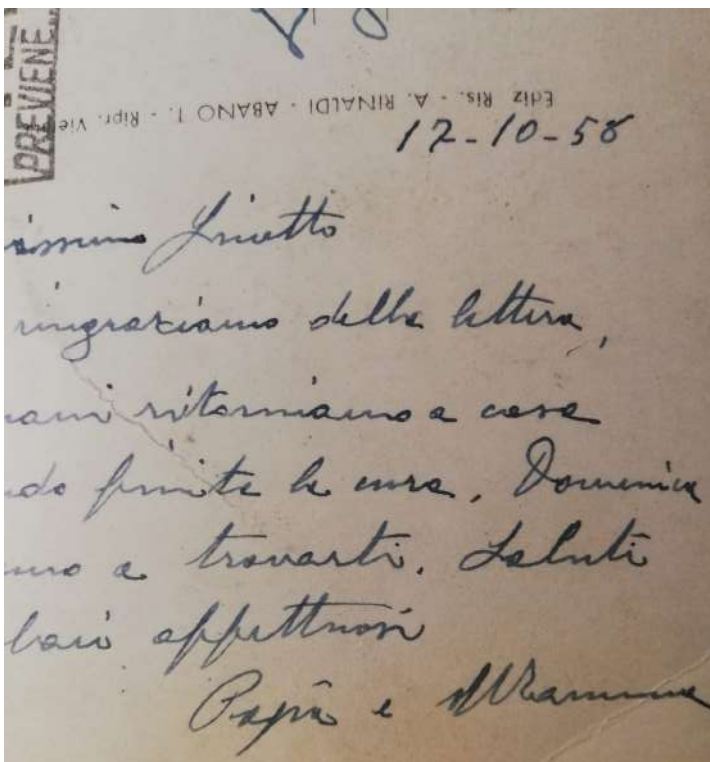 PREVIENE
Ediz Ris. - A. RINALDI - ABANO T. - Ripr. Vie
17-10-58
issimo
ringraziamo della lettera,
mani ritorniamo a casa
ndo finite le cure. Domenica
mo a trovarti. Saluti
baci affettuosi
Papà e Mamma